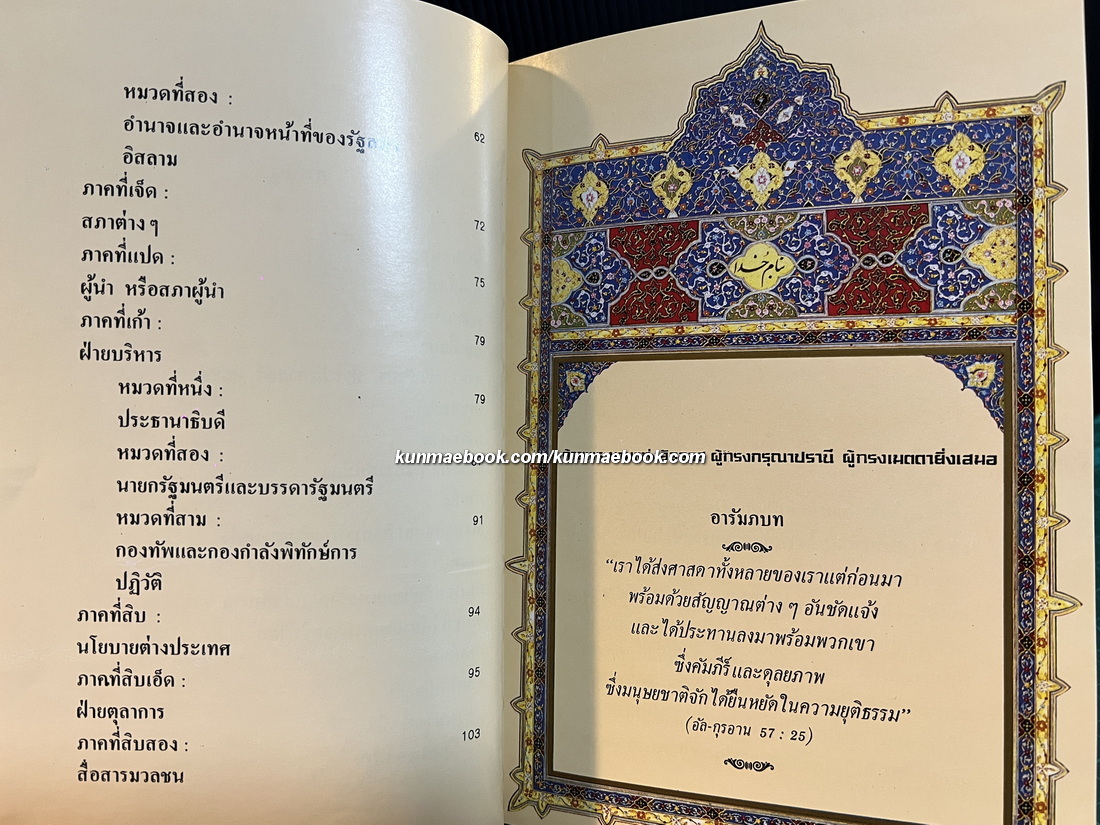 หมวดที่สอง :
อำนาจและอำนาจหน้าที่ของรัฐ 62
อิสลาม
ภาคที่เจ็ด :
สภาต่าง ๆ 72
ภาคที่แปด :
ผู้นำ หรือสภาผู้นำ 75
ภาคที่เก้า : 79
ฝ่ายบริหาร
หมวดที่หนึ่ง : 79
ประธานาธิบดี
หมวดที่สอง :
นายกรัฐมนตรีและบรรดารัฐมนตรี
หมวดที่สาม : 91
กองทัพและกองกำลังพิทักษ์การ
ปฏิวัติ
ภาคที่สิบ : 94
นโยบายต่างประเทศ
ภาคที่สิบเอ็ด : 95
ฝ่ายตุลาการ
ภาคที่สิบสอง : 103
สื่อสารมวลชน
kunmaebook.com/kunmaebook.com
بنام خدا
ผู้ทรงกรุณาปรานี ผู้ทรงเมตตายิ่งเสมอ
อารัมภบท
“เราได้ส่งศาสดาทั้งหลายของเราแต่ก่อนมา
พร้อมด้วยสัญญาณต่าง ๆ อันชัดแจ้ง
และได้ประทานลงมาพร้อมพวกเขา
ซึ่งคัมภีร์และดุลยภาพ
ซึ่งมนุษยชาติจักได้ยืนหยัดในความยุติธรรม”
(อัล-กุรอาน 57 : 25)